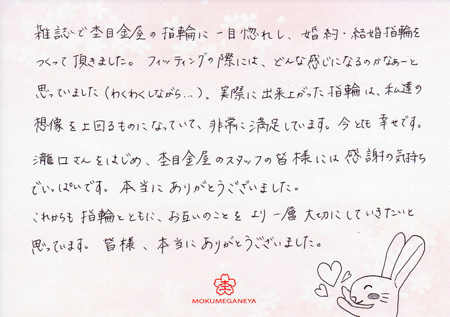 雑誌で杢目金屋の指輪に一目惚れし、婚約・結婚指輪を
つくって頂きました。フィッティングの際には、どんな感じになるのかなぁーと
思っていました(わくわくしながら…)。実際に出来上がった指輪は、私達の
想像を上回るものになっていて、非常に満足しています。今とても幸せです。
瀧口さんをはじめ、杢目金屋のスタッフの皆様には感謝の気持ち
でいっぱいです。本当にありがとうございました。
これからも指輪とともに、お互いのことをより一層大切にしていきたいと
思っています。皆様、本当にありがとうございました。
MOKUMEGANEYA